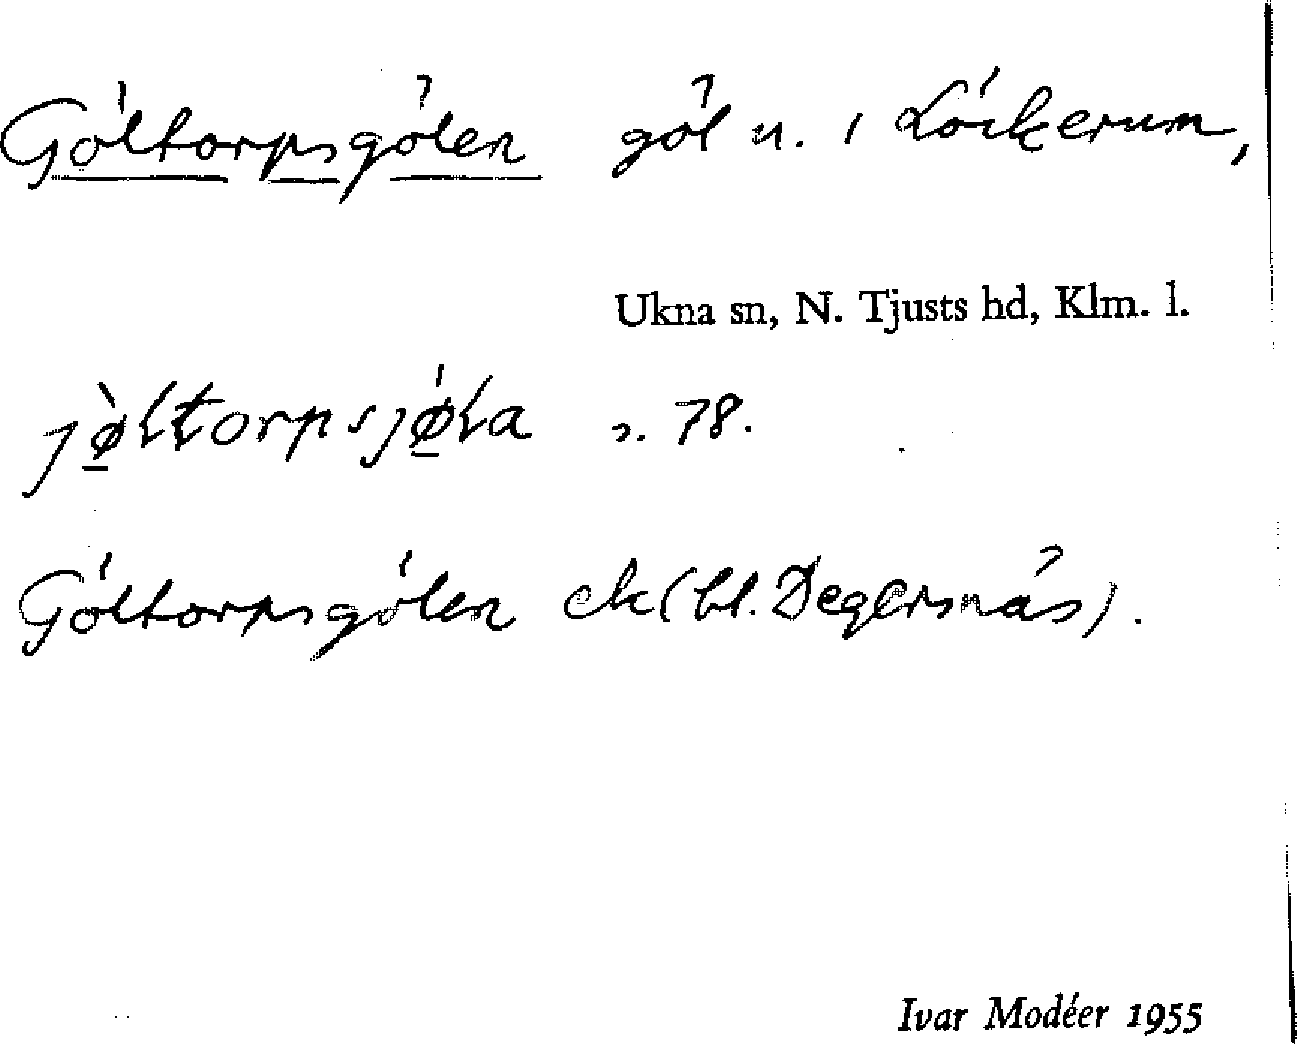 Göltorpsgölen göl u. i Löckerum,
Ukna sn, N. Tjusts hd, Klm. l.
jø̀ltorpsjǿla s. 78.
Göltorpsgölen ek (bl. Degersnäs).
Ivar Modéer 1955